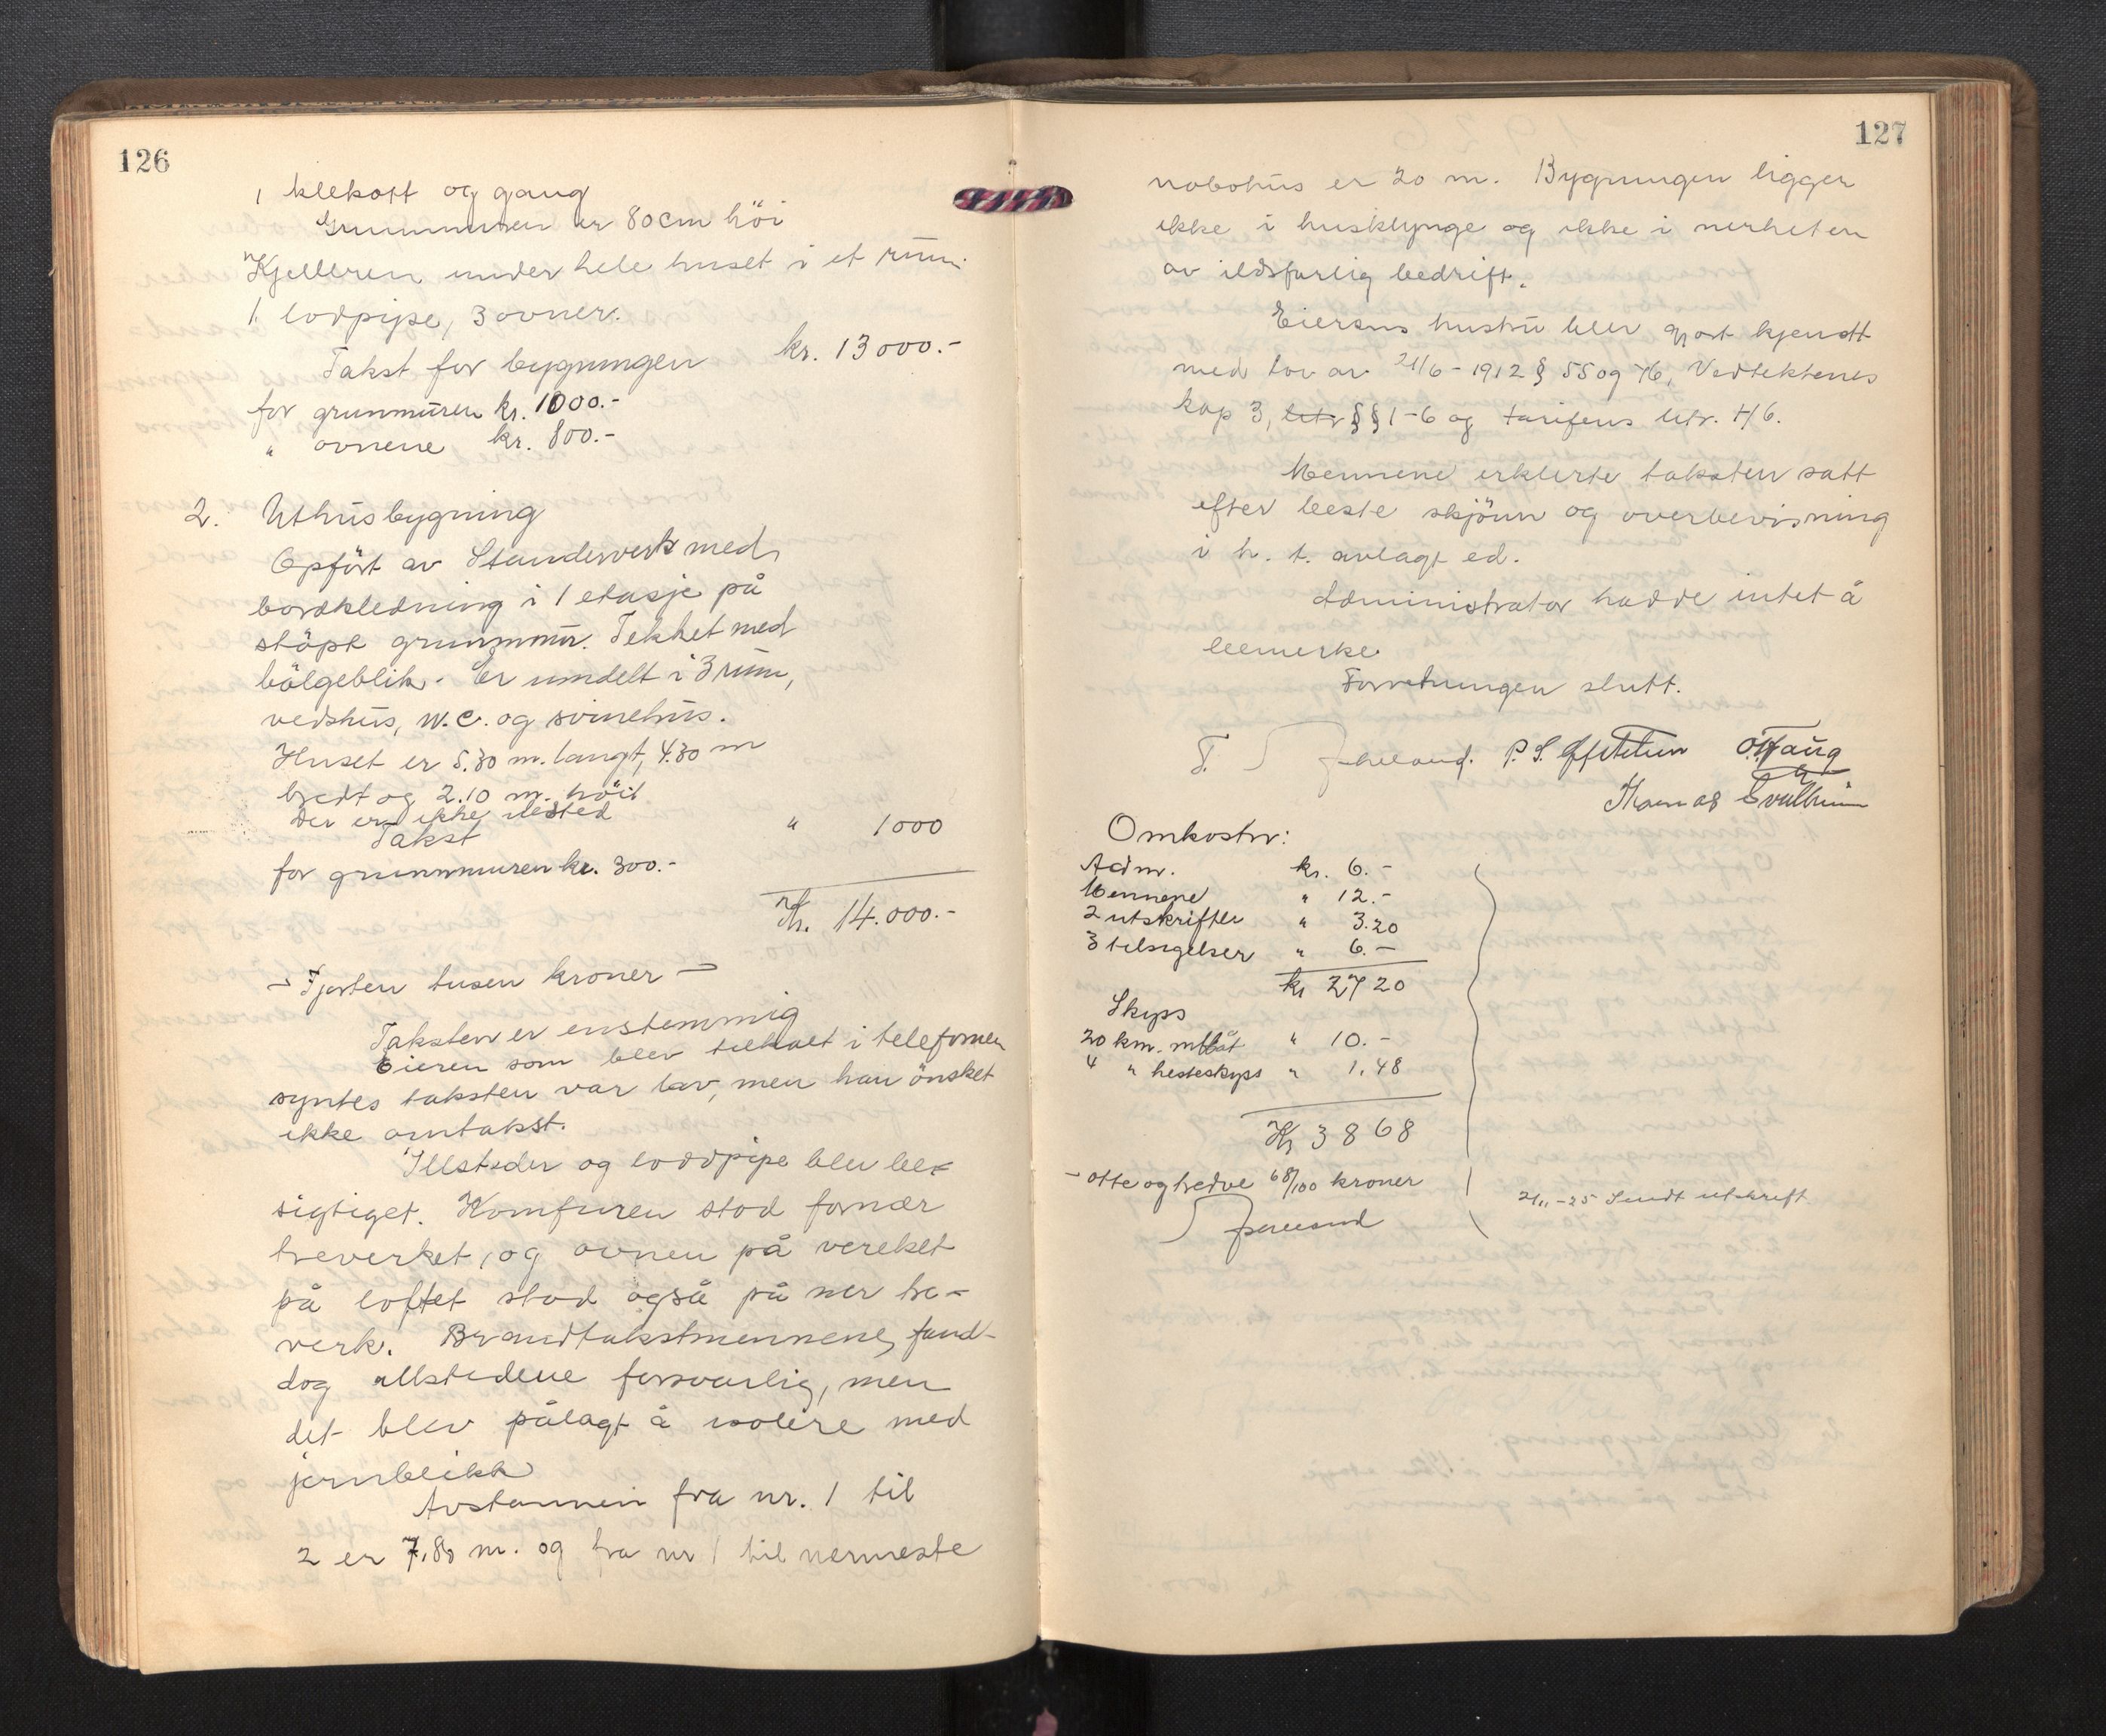 126
1 klekott og gang
Grunnmuren er 80 cm höi
Kjelleren under hele huset i et rum
1 lodpipe, 3 ovner.
Takst for bygningen kr. 13000.-
for grunmuren kr. 1000.-
" ovnene kr. 800.-
2. Uthusbygning
Opfört av Standerverk med
bordkledning i 1 etasje på
stöpt grunnmur. Tekket med
bölgeblik. Er inndelt i 3 rum,
vedshus, W.C. og svinehus.
Huset er 5.30 m. langt, 4.30 m
bredt og 2.10 m. höit
Der er ikke ilested
Takst " 1000
for grunnmuren kr. 300.-
Kr. 14.000.-
- Fjorten tusen kroner -
Taksten er enstemmig
Eieren som blev tilkalt i telefonen
syntes taksten var lav, men han önsket
ikke omtakst.
Illsteder og loddpipe blev be-
sigtiget. Komfuren stod for nær
treverket, og ovnen på verelset
på loftet stod også på nær tre-
verk. Brandtakstmennene fand-
dog illstedene forsvarlig, men
det blev pålagt å isolere med
jernblikk
Avstannen fra nr. 1 til
2 er 7.80 m. og fra nr 1 til nermeste
127
nabohus er 20 m. Bygningen ligger
ikke i husklynge og ikke i nerheten
av ildsfarlig bedrift.
Eierens hustru blev gjort kjendt
med lov av 21/6-1912 § 55 og 76, Vedtektenes
kap 3, litr §§ 1-6 og tarifens litr. H 6.
Mennene erklerte taksten satt
efter beste skjönn og overbevisning
i h. t. avlagt ed.
Administrator hadde intet å
bemerke.
Forretningen slutt.
T. P. S. Thomas
Omkostn:
Adm. kr. 6.-
Mennene " 12.-
2 utskrifter " 3.20
3 tilsigelser " 6.-
kr 27 20
Skyss
20 km. mtbåt " 10.-
4 " hesteskyss " 1.48
Kr 38 68
- otte og tredve 68/100 kroner
-25 Sendt utskrift